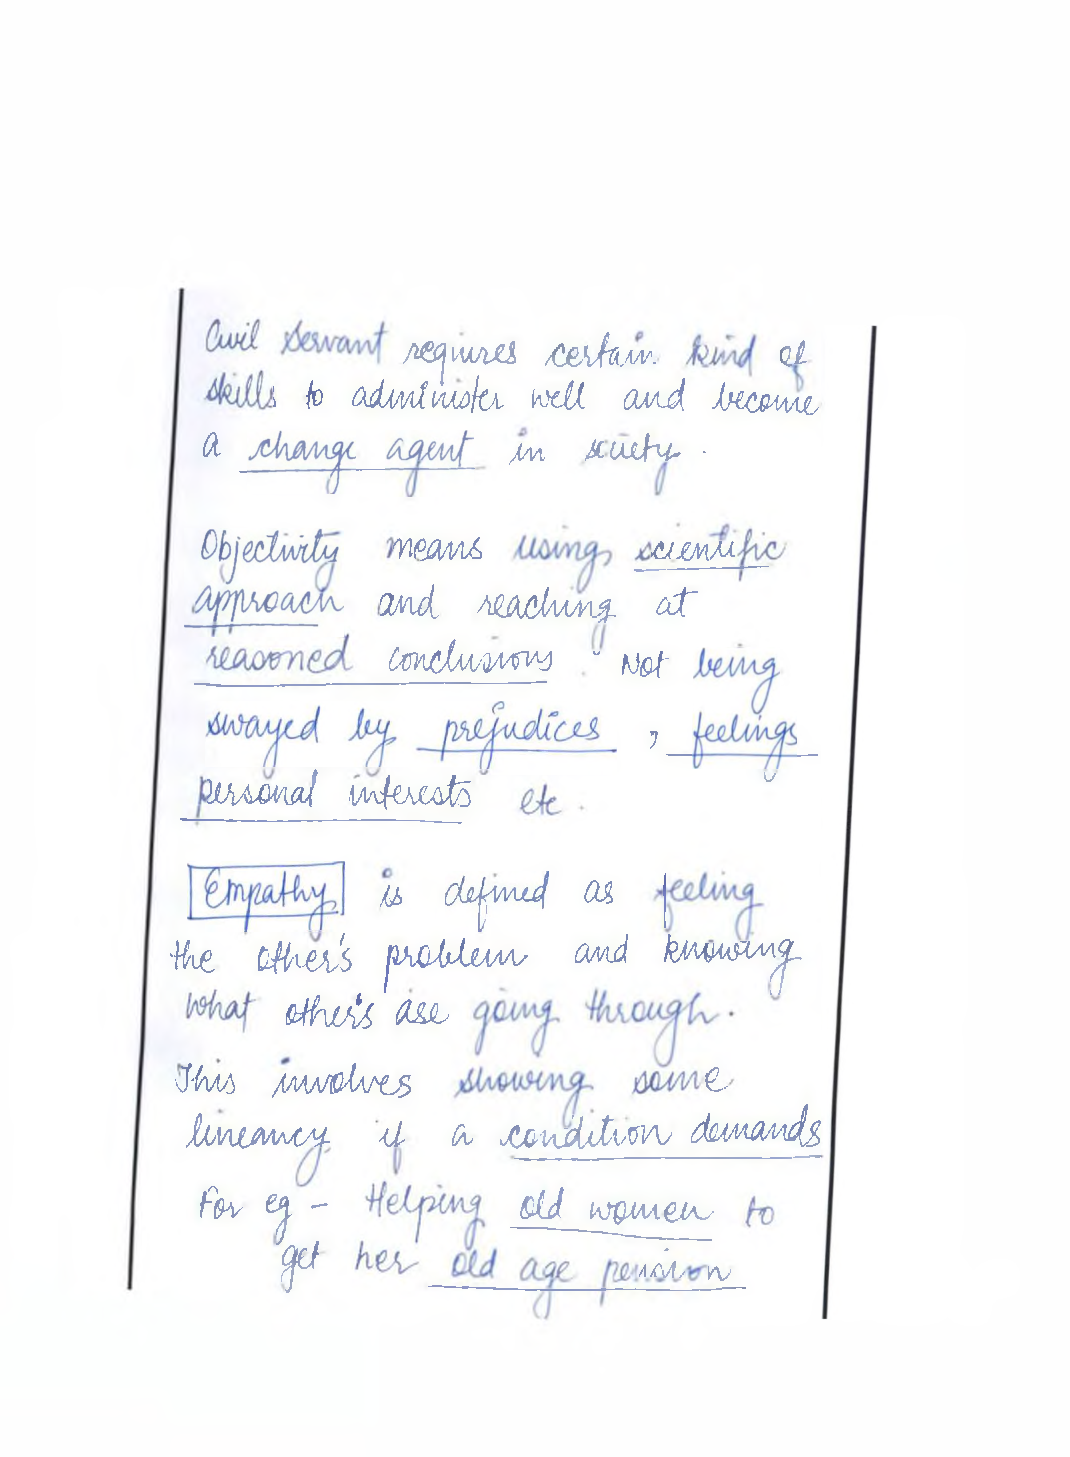 Civil Servant requires certain kind of
skills to administer well and become
a change agent in society.
Objectivity means using scientific
approach and reaching at
reasoned conclusions. Not being
swayed by prejudices, feelings
personal interests etc.
Empathy is defined as feeling
the other's problem and knowing
what other's are going through.
This involves showing some
lineancy if a condition demands
For eg - Helping old women to
get her old age pension